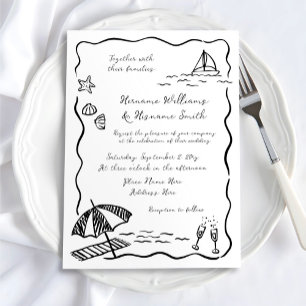 Together with
their families
Hername Williams
& Hisname Smith
Request the pleasure of your company
at the celebration of their wedding
Saturday, September 2, 20xx
At three o'clock in the afternoon
Place Name Here
Address Here
Reception to follow